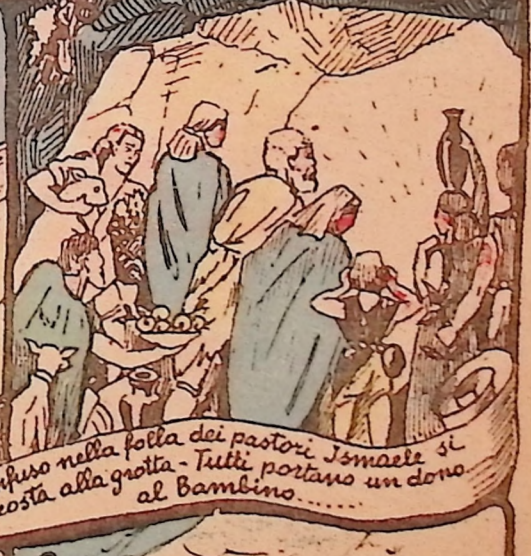 nfuso nella folla dei pastori Ismaele si
costa alla grotta - Tutti portano un dono
al Bambino.......